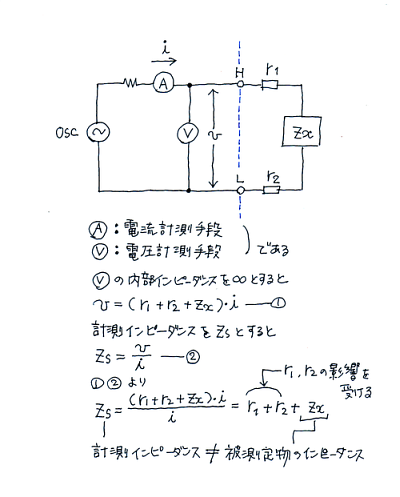 i
H
r1
A
OSC
V
v
Zx
L
r2
Ⓐ：電流計測手段
Ⓥ：電圧計測手段
である
Ⓥの内部インピーダンスを∞とすると
v = (r1 + r2 + Zx)・i ―①
計測インピーダンスをZsとすると
Zs = v/i ―②
r1, r2の影響を
受ける
①②より
Zs = (r1 + r2 + Zx)・i / i = r1 + r2 + Zx
計測インピーダンス ≠ 被測定物のインピーダンス